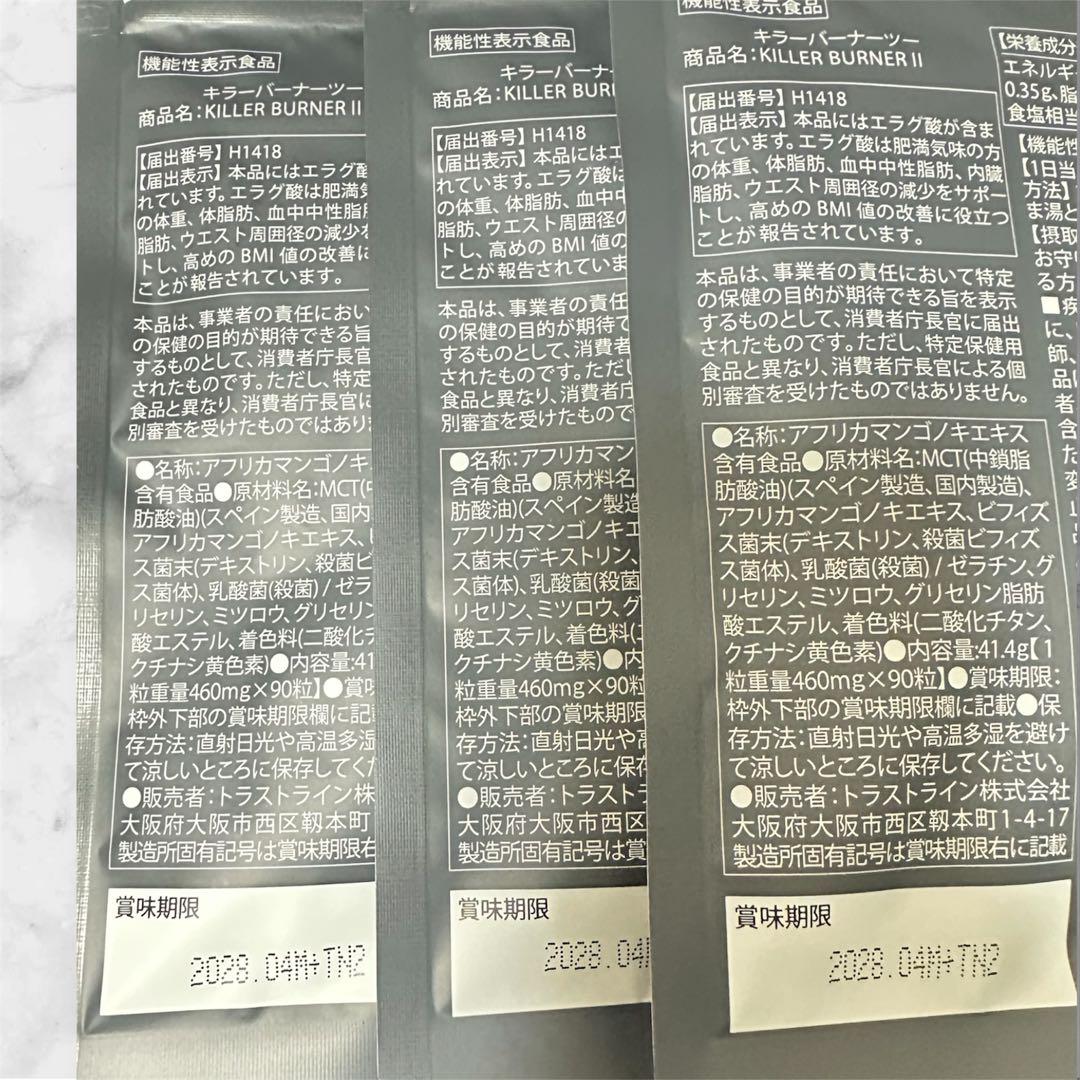 機能性表示食品
キラーバーナーツー
商品名：KILLER BURNER II
【届出番号】H1418
【届出表示】本品にはエラグ酸
れています。エラグ酸は肥満気
の体重、体脂肪、血中中性脂肪
脂肪、ウエスト周囲径の減少を
トし、高めの BMI 値の改善に
ことが報告されています。
本品は、事業者の責任におい
の保健の目的が期待できる旨
するものとして、消費者庁長官
されたものです。ただし、特定
食品と異なり、消費者庁長官に
別審査を受けたものではあり
●名称：アフリカマンゴノキエ
含有食品●原材料名：MCT(中
肪酸油)(スペイン製造、国内
アフリカマンゴノキエキス、
ス菌末(デキストリン、殺菌ビ
ス菌体)、乳酸菌(殺菌) / ゼラ
リセリン、ミツロウ、グリセリ
酸エステル、着色料(二酸化チ
クチナシ黄色素)●内容量:41
粒重量460mg×90粒】●賞味
枠外下部の賞味期限欄に記
存方法：直射日光や高温多湿
て涼しいところに保存してくだ
●販売者：トラストライン株
大阪府大阪市西区靱本町
製造所固有記号は賞味期限右
賞味期限
2028.04M+TN2
機能性表示食品
キラーバーナー
商品名：KILLER BUR
【届出番号】H1418
【届出表示】本品には
れています。エラグ酸は
の体重、体脂肪、血中
脂肪、ウエスト周囲径の
トし、高めの BMI 値の
ことが報告されています
本品は、事業者の責任
の保健の目的が期待で
するものとして、消費者
されたものです。ただし
食品と異なり、消費者庁
別審査を受けたもので
●名称：アフリカマンゴ
含有食品●原材料名
肪酸油)(スペイン製造
アフリカマンゴノキエ
ス菌末(デキストリン
ス菌体)、乳酸菌(殺菌
リセリン、ミツロウ、グ
酸エステル、着色料(
クチナシ黄色素)●内
粒重量460mg×90粒
枠外下部の賞味期限
存方法：直射日光や高
て涼しいところに保存
●販売者：トラストラ
大阪府大阪市西区靱
製造所固有記号は賞
賞味期限
2028.04
機能性表示食品
キラーバーナーツー
商品名：KILLER BURNER II
【届出番号】H1418
【届出表示】本品にはエラグ酸が含ま
れています。エラグ酸は肥満気味の方
の体重、体脂肪、血中中性脂肪、内臓
脂肪、ウエスト周囲径の減少をサポー
トし、高めの BMI 値の改善に役立つ
ことが報告されています。
本品は、事業者の責任において特定
の保健の目的が期待できる旨を表示
するものとして、消費者庁長官に届出
されたものです。ただし、特定保健用
食品と異なり、消費者庁長官による個
別審査を受けたものではありません。
●名称：アフリカマンゴノキエキス
含有食品●原材料名：MCT(中鎖脂
肪酸油)(スペイン製造、国内製造)、
アフリカマンゴノキエキス、ビフィズ
ス菌末(デキストリン、殺菌ビフィズ
ス菌体)、乳酸菌(殺菌) / ゼラチン、グ
リセリン、ミツロウ、グリセリン脂肪
酸エステル、着色料(二酸化チタン、
クチナシ黄色素)●内容量:41.4g【1
粒重量460mg×90粒】●賞味期限：
枠外下部の賞味期限欄に記載●保
存方法：直射日光や高温多湿を避け
て涼しいところに保存してください。
●販売者：トラストライン株式会社
大阪府大阪市西区靱本町1-4-17
製造所固有記号は賞味期限右に記載
賞味期限
2028.04M+TN2
【栄養成分
エネルギ
0.35g、脂
食塩相当
【機能性
【1日当
方法】
ま湯と
【摂取
お守り
る方
■疾
に、
師、
品
者
含
た
変